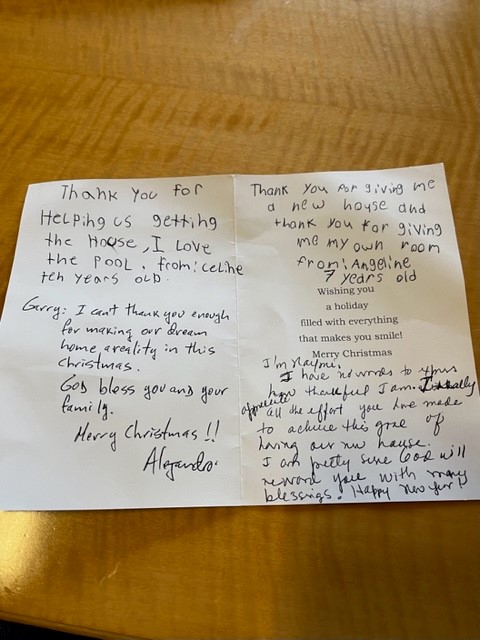 Thank you for
Helping us getting
the House, I Love
the Pool. from: celine
ten years old.
Gerry: I can't thank you enough
for making our dream
home a reality in this
christmas.
God bless you and your
family.
Merry Christmas!!
Alejandro.
Thank you for giving me
a new house and
thank you for giving
me my own room
from: Angeline
7 years old
Wishing you
a holiday
filled with everything
that makes you smile!
Merry Christmas
I'm
I have no words to
how thankful I am. I really
appreciate all the effort you have made
to achieve this goal of
having our new house.
I am pretty sure God will
reward you with many
blessings. Happy New Year!